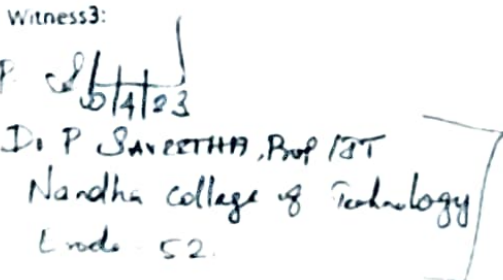 Witness3:
P. S
10/4/23
D. P SAVEETHA, Prof / IT
Nandha College of Technology
Erode - 52.